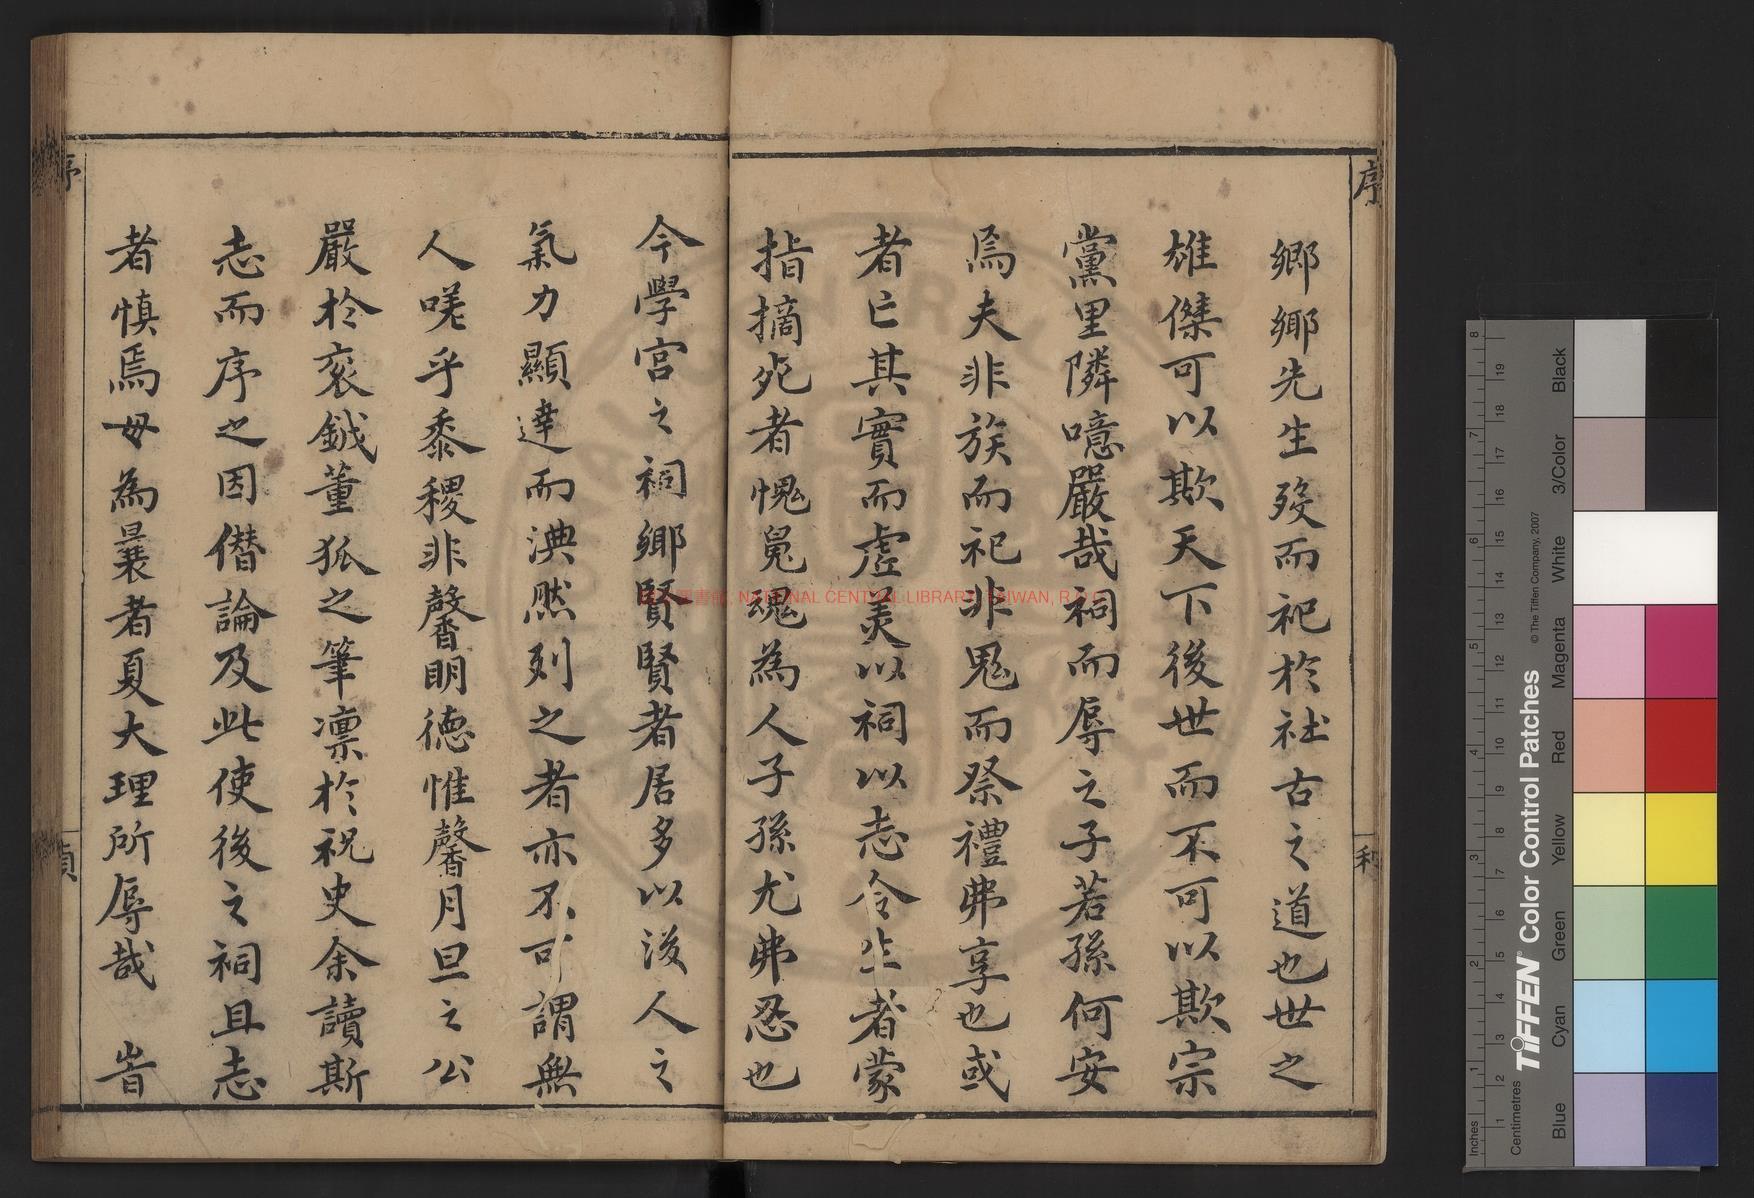 序
利
鄉鄉先生歿而祀於社古之道也世之
雄傑可以欺天下後世而不可以欺宗
黨里隣噫嚴哉祠而辱之子若孫何安
焉夫非族而祀非鬼而祭禮弗享也或
者亡其實而虛美以祠以志令生者蒙
指摘死者愧冕魂為人子孫尤弗忍也
今學宮之祠鄉賢賢者居多以後人之
氣力顯達而淟然列之者亦不可謂無
人嘆乎黍稷非馨明德惟馨月旦之公
嚴於袞鉞董狐之筆凛於祝史余讀斯
志而序之因僭論及此使後之祠且志
者慎焉毋為曩者夏大理所辱哉 旹
序
NATIONAL CENTRAL LIBRARY, TAIWAN, R.O.C
Inches
1 2 3 4 5 6 7 8
Centimetres
1 2 3 4 5 6 7 8 9 10 11 12 13 14 15 16 17 18 19
TIFFEN® Color Control Patches
© The Tiffen Company, 2007
Blue
Cyan
Green
Yellow
Red
Magenta
White
3/Color
Black